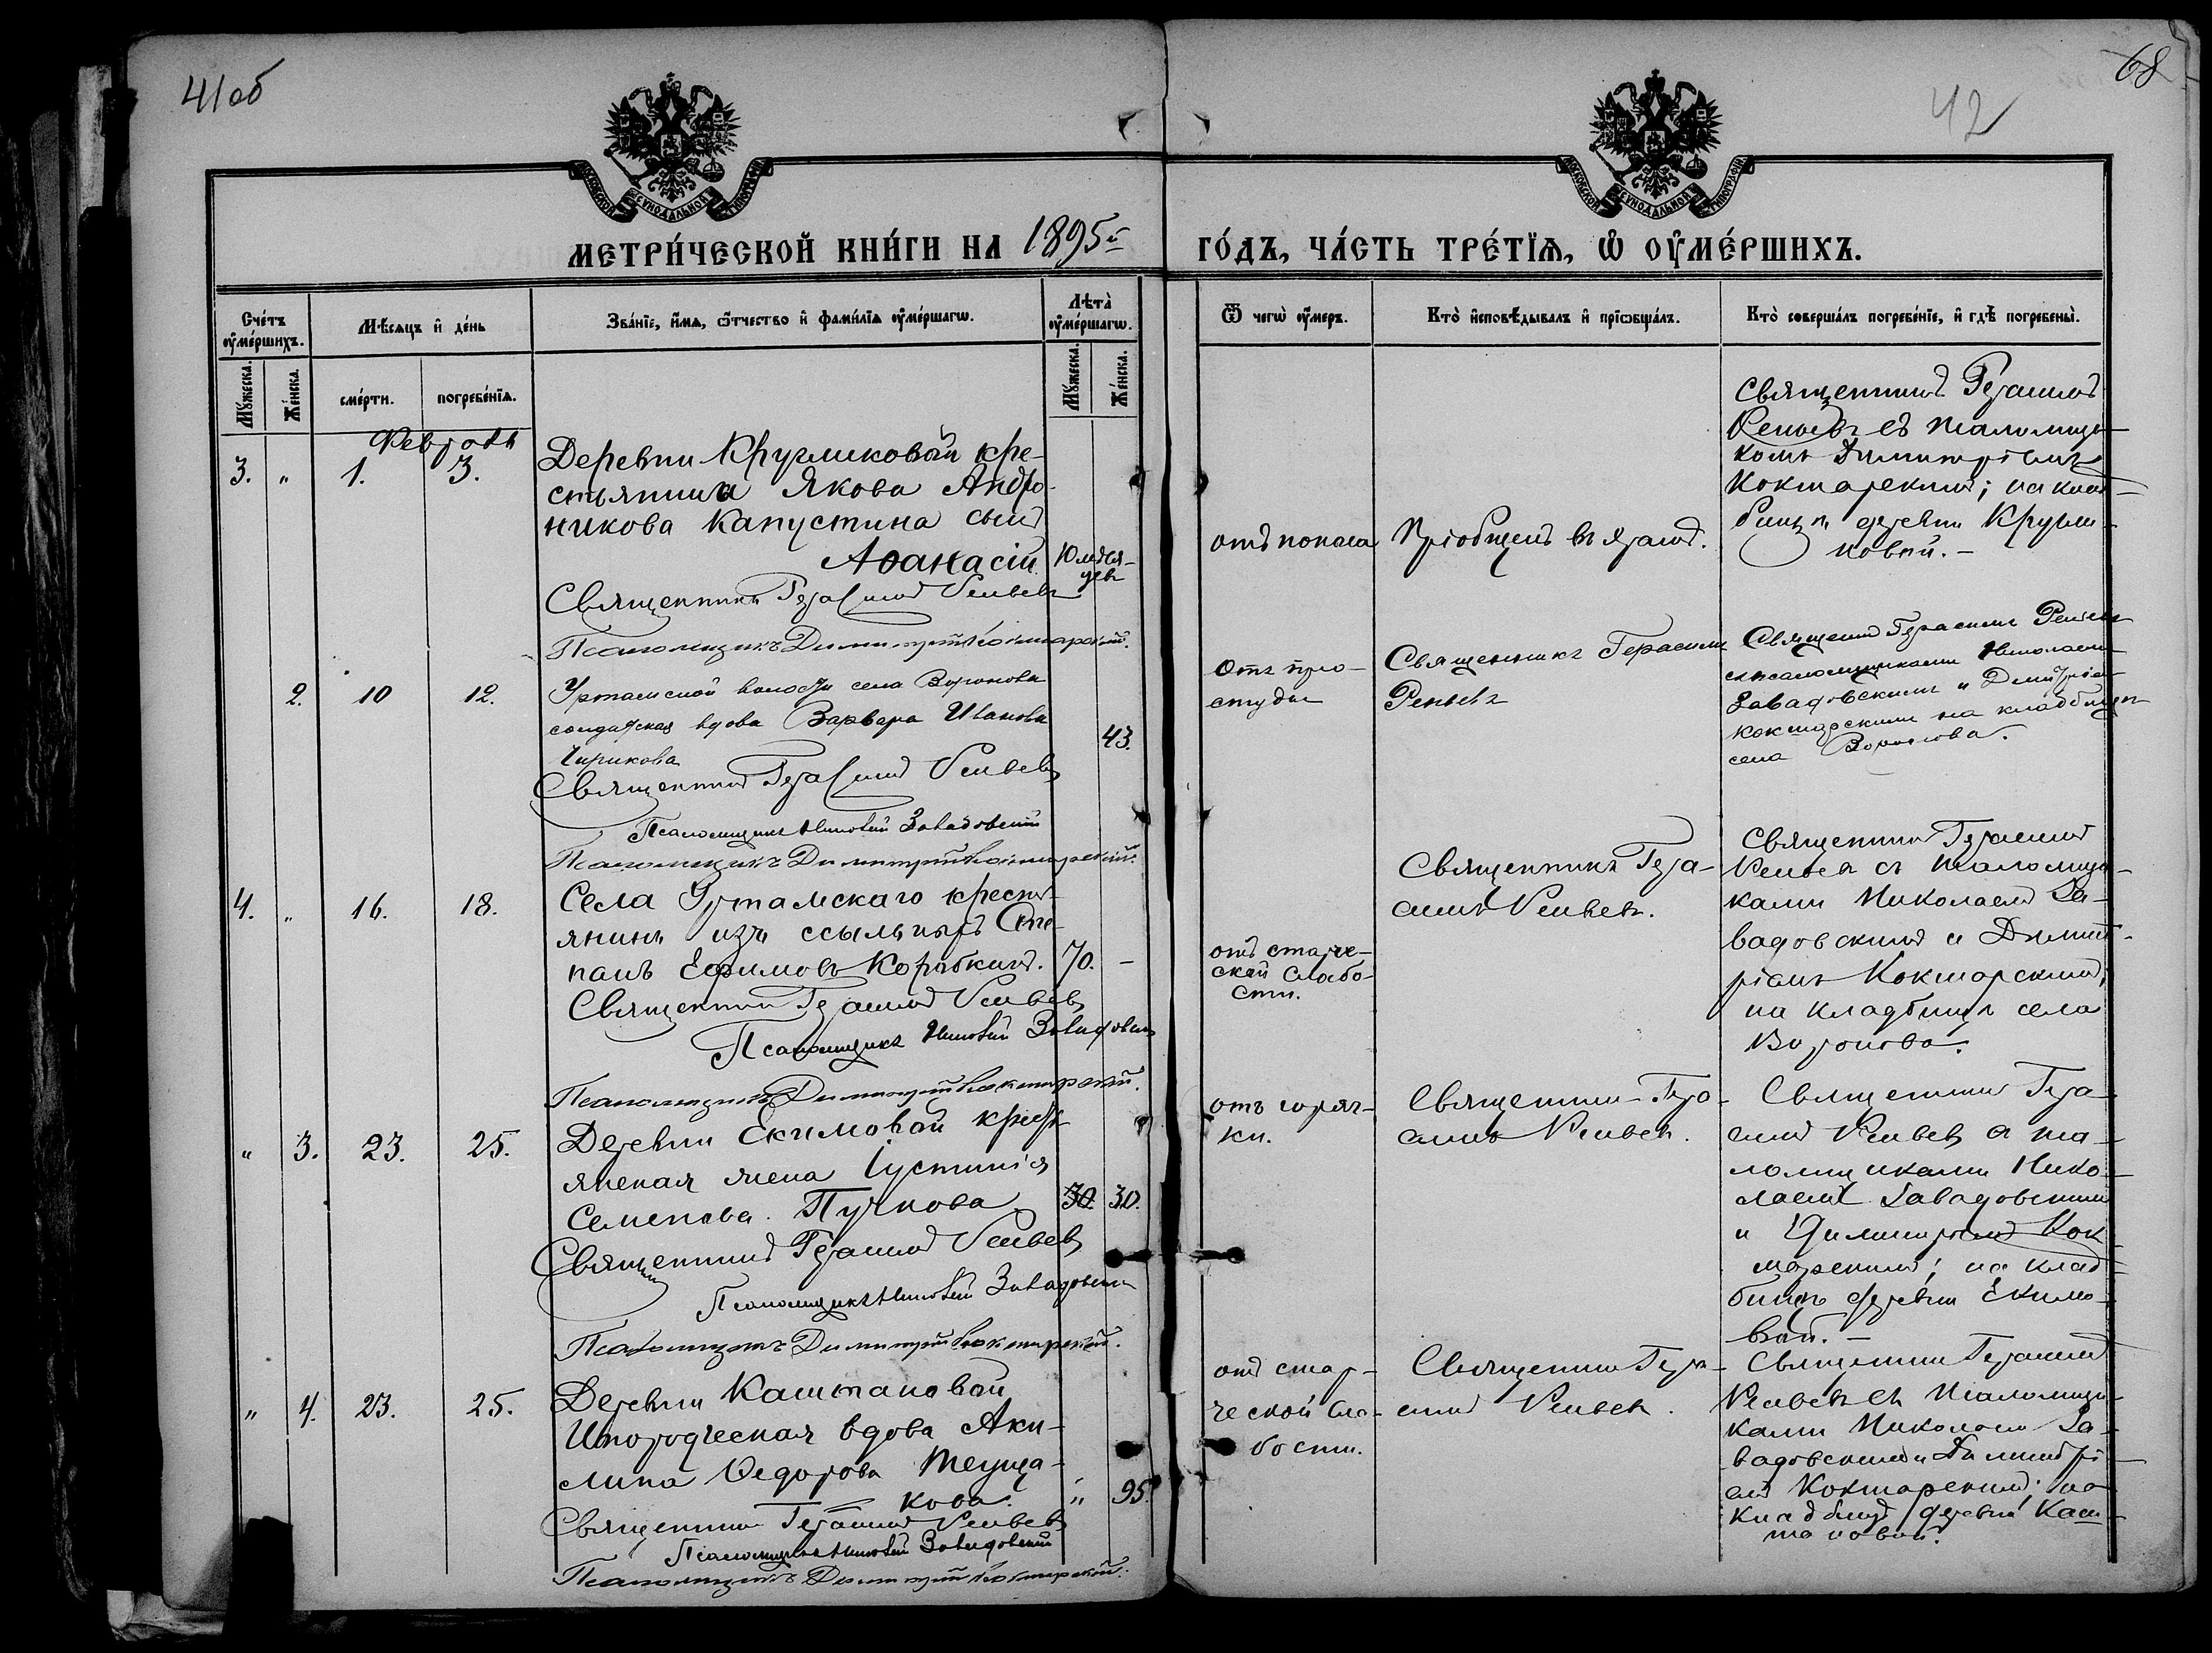 41об
68
42
МОСКОВСКОЙ СѴНОДАЛЬНОЙ ТИПОГРАФІИ
МОСКОВСКОЙ СѴНОДАЛЬНОЙ ТИПОГРАФІИ
МЕТРИ́ЧЕСКОЙ КНИ́ГИ НА 1895й ГО́ДЪ, ЧА́СТЬ ТРЕ́ТЇѦ, Ѡ ОУ҆МЕ́РШИХЪ.
Сче́тъ оу҆ме́ршихъ.
Мꙋ́жеска.
Же́нска.
Мѣ́сяцъ и҆ де́нь
сме́рти.
погребе́нїѧ.
Зва́нїе, и҆́мѧ, ѻ҆́тчество и҆ фами́лїѧ оу҆ме́ршагѡ.
Лѣта̀ оу҆ме́ршагѡ.
Мꙋ́жеска.
Же́нска.
Ѿ чегѡ̀ оу҆́меръ.
Кто̀ и҆сповѣ́дывалъ и҆ прїѡбща́лъ.
Кто̀ соверша́лъ погребе́нїе, и҆ гдѣ̀ погребены̀.
Февраль
3. " 1. 3.
Деревни Кругликовой кре-
стьянина Якова Андро-
никова Капустина сынъ
Аѳанасій
10 мѣся-
цевъ
Священникъ Герасимъ
Псаломщикъ Димитрій Кокшарскій.
отъ поноса
Пріобщенъ въ храмѣ.
Священникъ Герасимъ
съ псаломщи-
комъ Димитріемъ
Кокшарскимъ; на клад-
бищѣ деревни Кругли-
ковой.-
2. 10 12.
Уртамской волости села Воронова
солдатская вдова Варвара Иванова
Чирикова
43.
Священникъ Герасимъ
Псаломщикъ Николай Завадовскій
Псаломщикъ Димитрій Кокшарскій.
Отъ про-
студы
Священникъ Герасимъ
Священ. Герасимъ
съ псаломщиками Николаемъ
Завадовскимъ и Димитріем
Кокшарскимъ на кладбищѣ
села Воронова.
4. " 16. 18.
Села Уртамскаго кресть-
янинъ изъ ссыльныхъ Сте-
панъ Ефимовъ Коробкинъ. 70. -
Священникъ Герасимъ
Псаломщикъ Николай Завадовскій
Псаломщикъ Димитрій Кокшарскій.
отъ старче-
ской слабо-
сти.
Священникъ Гера-
симъ
Священникъ Герасимъ
съ псаломщи-
ками Николаемъ За-
вадовскимъ и Димит-
ріемъ Кокшарскимъ;
на кладбищѣ села
Воронова.
" 3. 23. 25.
Деревни Екимовой кресть-
янская жена Іустинія
Семенова Пучкова 30. 30.
Священникъ Герасимъ
Псаломщикъ Николай Завадовскій
Псаломщикъ Димитрій Кокшарскій.
отъ горяч-
ки.
Священникъ Гера-
симъ
Священникъ Гера-
симъ съ пса-
ломщиками Нико-
лаемъ Завадовскимъ
и Димитріемъ Кок-
шарскимъ; на клад-
бищѣ деревни Екимо-
вой.-
" 4. 23. 25.
Деревни Каштаковой
Инородческая вдова Аки-
лина Ѳедорова
кова. " 95.
Священникъ Герасимъ
Псаломщикъ Николай Завадовскій
Псаломщикъ Димитрій Кокшарскій.
отъ стар-
ческой сла-
бости.
Священникъ Гера-
симъ
Священникъ Герасимъ
съ псаломщи-
ками Николаемъ За-
вадовскимъ и Димитрі-
емъ Кокшарскимъ; на
кладбищѣ деревни Каш-
таковой.